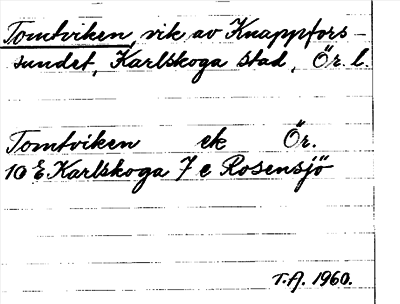 Tomtviken, vik av Knappfors-
sundet, Karlskoga stad, Ör. l.
Tomtviken ek Ör.
10 E Karlskoga 7 e Rosensjö
T.A. 1960.